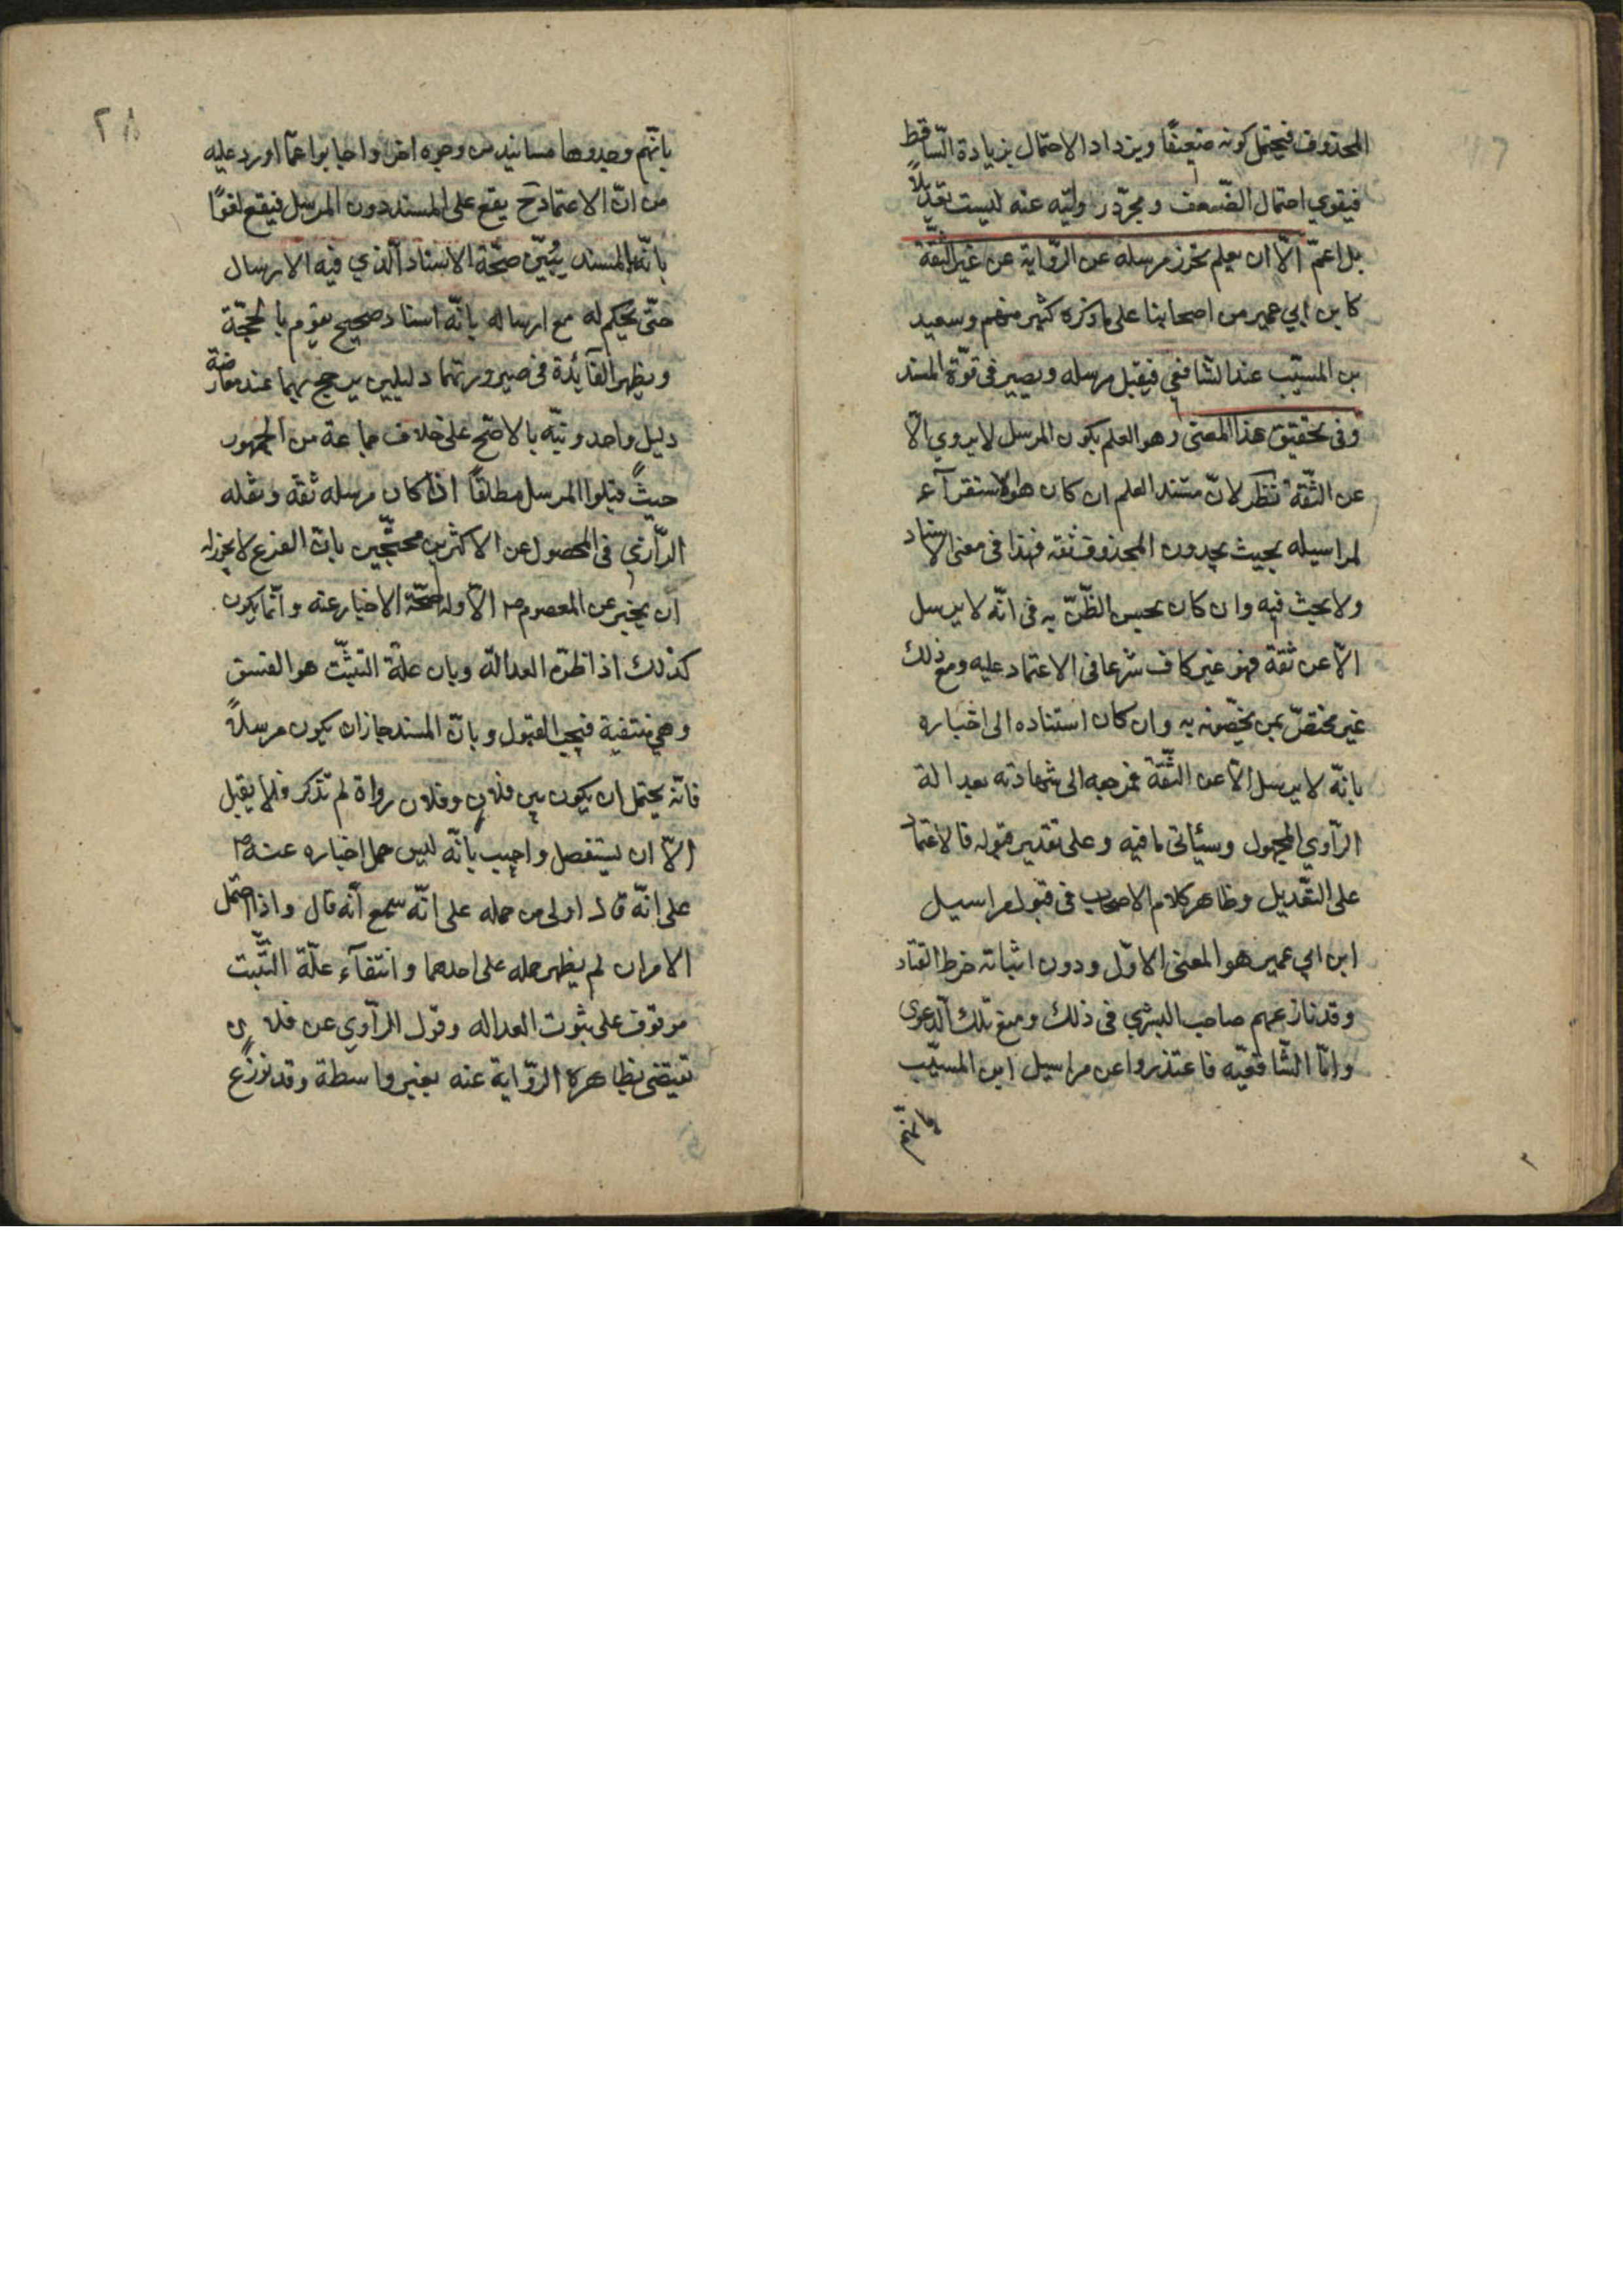 المحذوف فيحتمل كونه ضعيفًا ويزداد الاحتمال بزيادة السّاقط
فيقوي احتمال الضّعف ومجرّد روايته عنه ليست تعديلًا
بل اعمّ الّا ان يعلم تحرز مرسله عن الرّواية عن غير الثّقة
كابن ابي عمير من اصحابنا على ما ذكره كثير منهم وسعيد
بن المسيّب عند الشافعي فيقبل مرسله ويصير في قوّة المسند
وفي تحقيق هذا المعنى وهو العلم بكون المرسل لا يروي الّا
عن الثّقة نظر لانّ مستند العلم ان كان هو الاستقرآء
لمراسيله بحيث يجدون المحذوف ثقة فهذا في معنى الاسناد
ولا بحث فيه وان كان بحسن الظّنّ به في انّه لا يرسل
الّا عن ثقة فهو غير كاف شرعا في الاعتماد عليه ومع ذلك
غير مختصّ بمن يخصّونه به وان كان استناده الى اخباره
بانّه لا يرسل الّا عن الثّقة فمرجعه الى شهادته بعدالة
الرّاوي المجهول وسيأتي ما فيه وعلى تقدير قبوله فالاعتماد
على التعّديل وظاهر كلام الاصحاب في قبول مراسيل
ابن ابي عمير هو المعنى الاوّل ودون اثباته خرط القتاد
وقد نازعهم صاحب البشري في ذلك ومنع تلك الدعوى
وامّا الشّافعيّه فاعتذروا عن مراسيل ابن المسيّب
بانّهم
٢٨
بانّهم وجدوها مسانيد من وجوه اخر واجابوا عمّا اورد عليه
من انّ الاعتماد ح يقع على المسند دون المرسل فيقع لغوًا
بانّه بالمسند يتبيّن صحّة الاسناد الّذي فيه الارسال
حتّى يحكم له مع ارساله بانّه اسناد صحيح تقوم به الحجّة
ويظهر الفآئدة في صيرورتهما دليلين يرجح بهما عند معارضة
دليل واحد ونبّه بالاصحّ على خلاف جماعة من الجمهور
حيث قبلوا المرسل مطلقًا اذا كان مرسله ثقه ونقله
الرّازي في المحصول عن الاكثرين محتجّين بانّ الفرع لا يجوز له
ان يخبر عن المعصوم ع الّا وله صحّة الاخبار عنه وانّما يكون
كذلك اذا ظنّ العدالة وبان علّة التثبّت هو الفسق
وهي منتفية فيجب القبول وبانّ المسند جاز ان يكون مرسلًا
فانّه يحتمل ان يكون بين فلان وفلان رواة لم تذكر فلا يقبل
الّا ان يستفصل واجيب بانّه ليس حمل اخباره عنه ع
على انّه قال اولى من حمله على انّه سمع انّه قال واذا احتمل
الامران لم يظهر حمله على احدهما وانتفآء علّة التّثبت
موقوف على ثبوت العداله وقول الرّاوي عن فلان
تقتضي بظاهره الرّواية عنه بغير واسطة وقد نوزع